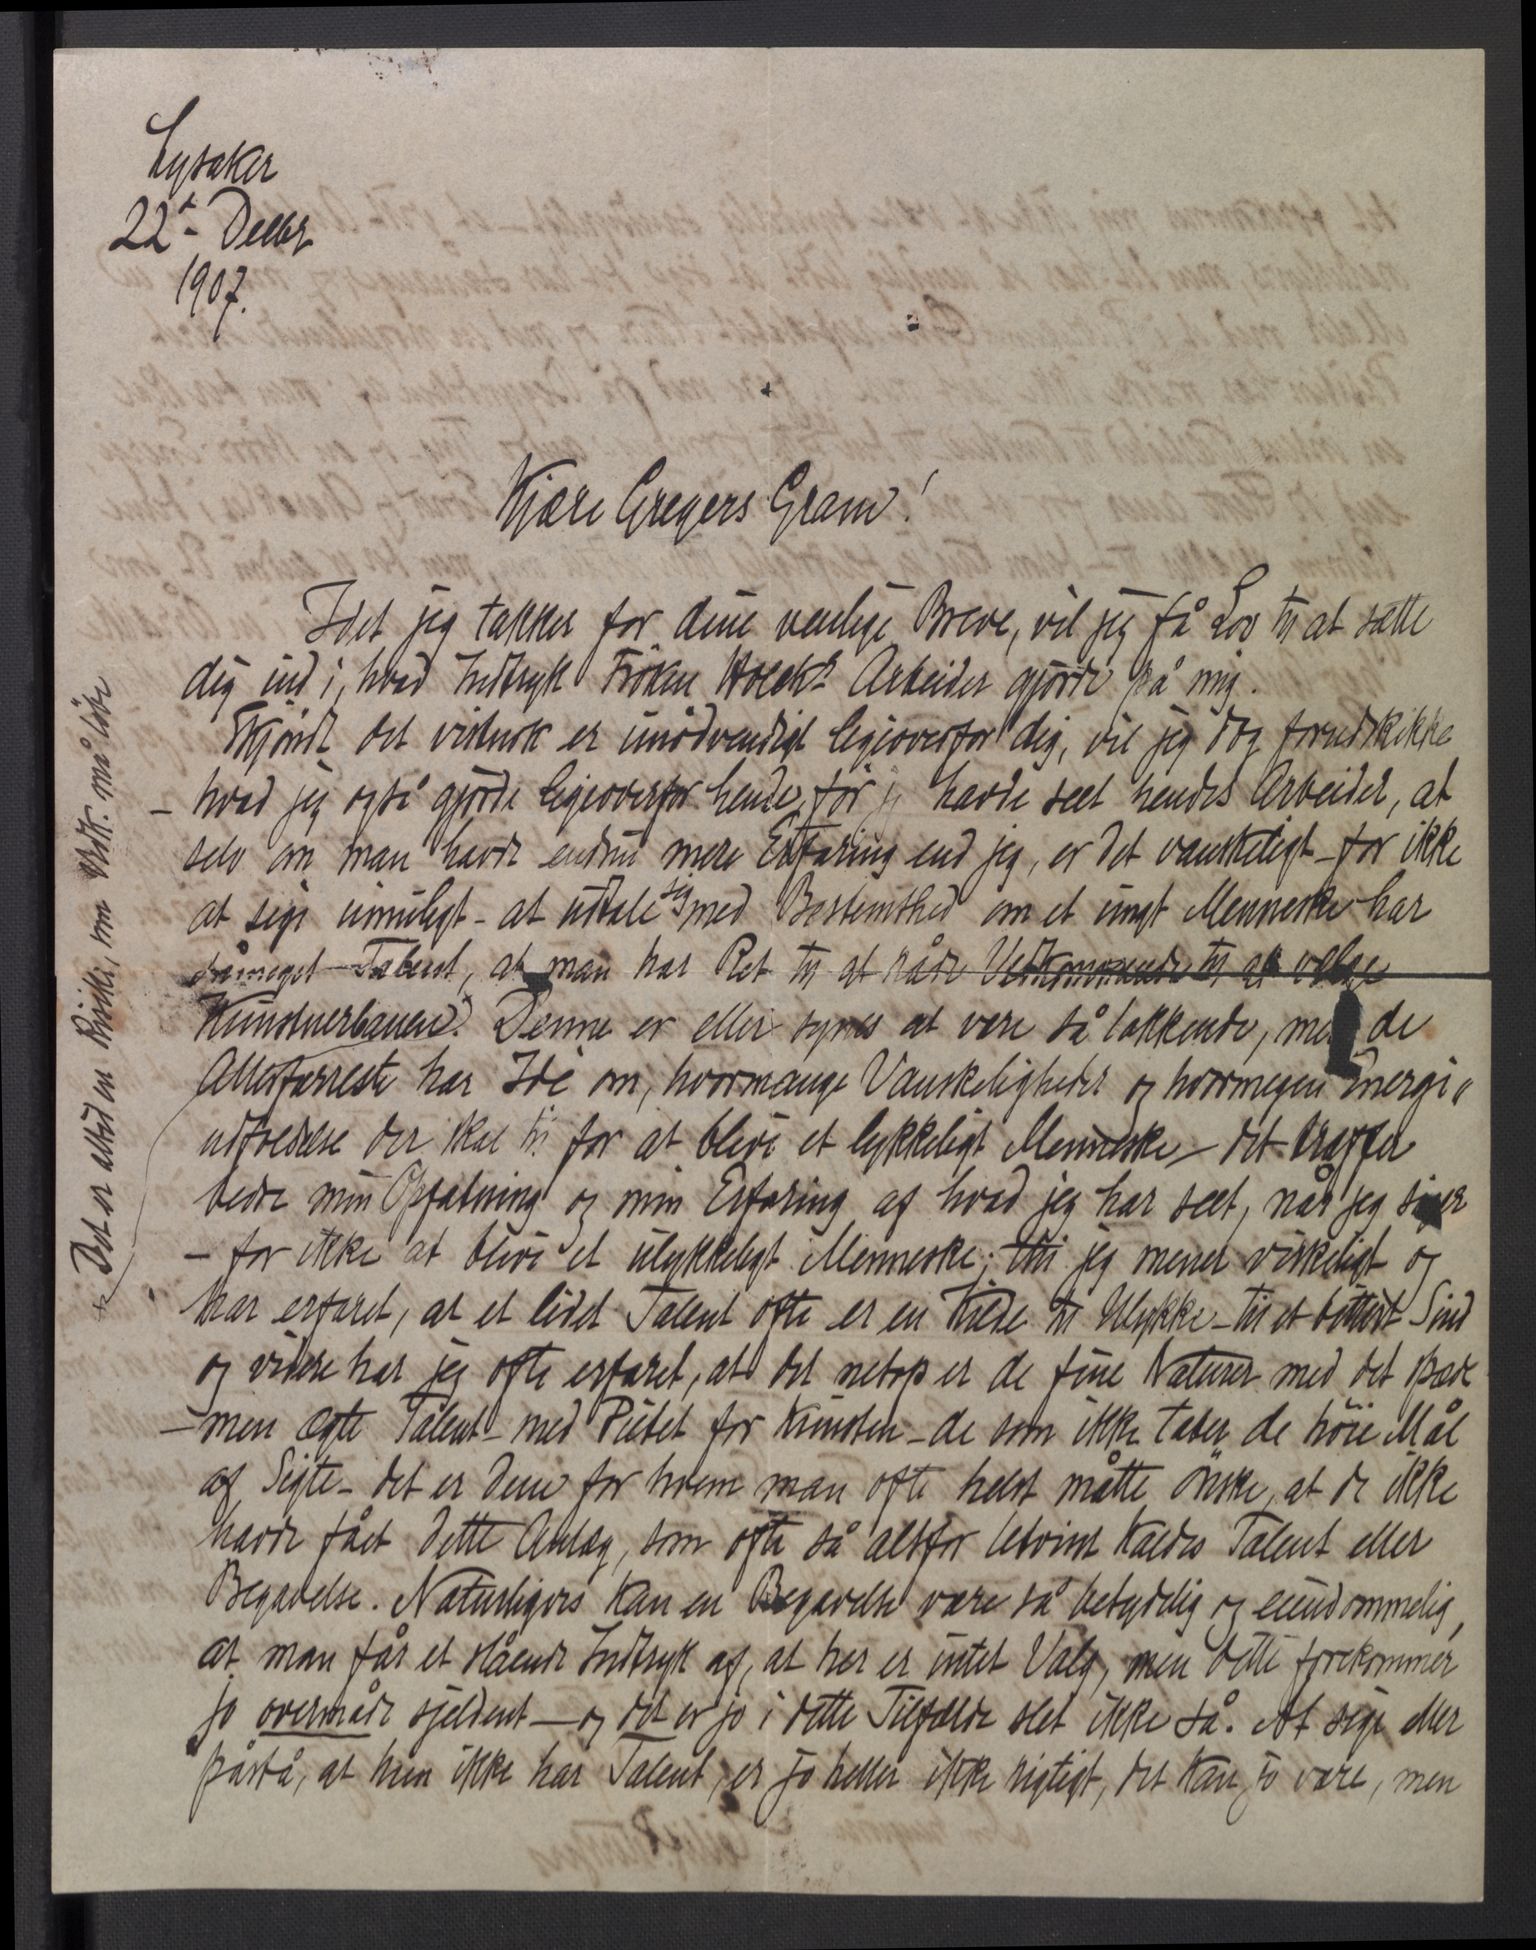 Lysaker
22d Decbr
1907.
Kjære Gregers Gram!
Idet jeg takker for dine venlige Breve, vil jeg få Lov til at sætte
dig ind i, hvad Indtryk Frøken Holcks Arbeider gjorde på mig.
Skjøndt det vistnok er unødvendigt ligeoverfor dig, vil jeg dog forudskikke
– hvad jeg også gjorde ligeoverfor hende, før jeg havde seet hendes Arbeider, at
selv om man havde endnu mere Erfaring end jeg, er det vanskeligt – for ikke
at sige umuligt – at udtale sig med Bestemthed om et ungt Menneske har
såmeget Talent, at man har Ret til at råde Vedkommende til at vælge
Kunstnerbanen. Denne er eller synes at være så lokkende, men de
Allerfærreste har Idé om, hvormange Vanskeligheder og hvormegen Energi-
udfoldelse der skal til for at blive et lykkeligt Menneske – det træffer
bedre min Opfatning og min Erfaring af hvad jeg har seet, når jeg siger
– for ikke at blive et ulykkeligt Menneske; thi jeg mener virkeligt og
har erfaret, at et lidet Talent ofte er en Kilde til Ulykke – til et bittert Sind
og videre har jeg ofte erfaret, at det netop er de fine Naturer med det spæde
– men ægte Talent – med Pietet for Kunsten – de som ikke taber de høie Mål
af Sigte – det er dem for hvem man ofte helst måtte ønske, at de ikke
havde fået dette Anlæg, som ofte så altfor letvint kaldes Talent eller
Begavelse. Naturligvis kan en Begavelse være så betydelig og eiendommelig,
at man får et slående Indtryk af, at her er intet Valg, men dette forekommer
jo overmåde sjeldent – og det er jo i dette Tilfælde slet ikke så. At sige eller
påstå, at hun ikke har Talent, er jo heller ikke rigtigt, det kan jo være, men
Det er altid en Risiko, som Vedk. må løbe